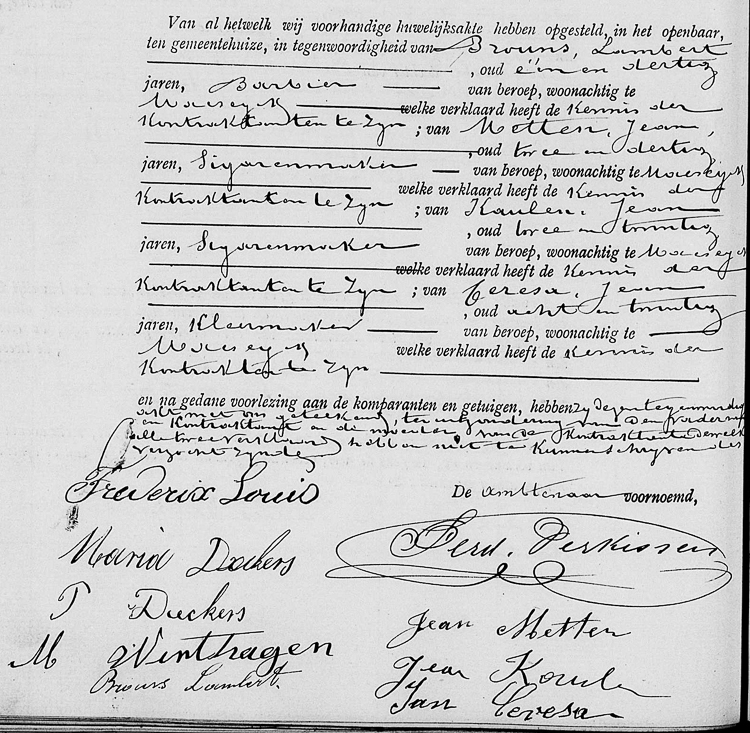 Van al hetwelk wij voorhandige huwelijksakte hebben opgesteld, in het openbaar,
ten gemeentehuize, in tegenwoordigheid van Brouns, Lambert
, oud één en dertig
jaren, Barbier van beroep, woonachtig te
Maeseyck welke verklaard heeft de Kennis der
Kontraktanten te Zyn ; van Metten, Jean,
, oud twee en dertig
jaren, Sigarenmaker van beroep, woonachtig te Maeseyck
welke verklaard heeft de Kennis der
Kontraktanten te Zyn ; van Kaulen, Jean
, oud twee en twintig
jaren, Sigarenmaker van beroep, woonachtig te Maeseyck
welke verklaard heeft de Kennis der
Kontraktanten te Zyn ; van Ceresa, Jean
, oud acht en twintig
jaren, Kleermaker van beroep, woonachtig te
Maeseyck welke verklaard heeft de Kennis der
Kontraktanten te Zyn
en na gedane voorlezing aan de komparanten en getuigen, hebben zy dezen tegenwoordig
akte met ons geteekend, ter uitzondering van den vader
en Kontraktant en de moeder van de Kontraktante dewelk
alle twee verklaard hebben niet te Kunnen schryven des
verzocht zynde
Frederix Louis
De ambtenaar voornoemd,
Maria Dackers
Ferd. Perkissen
P Dackers
Jean Metten
M Winthagen
Jean Kaulen
Brouns Lambert.
Jan Ceresa